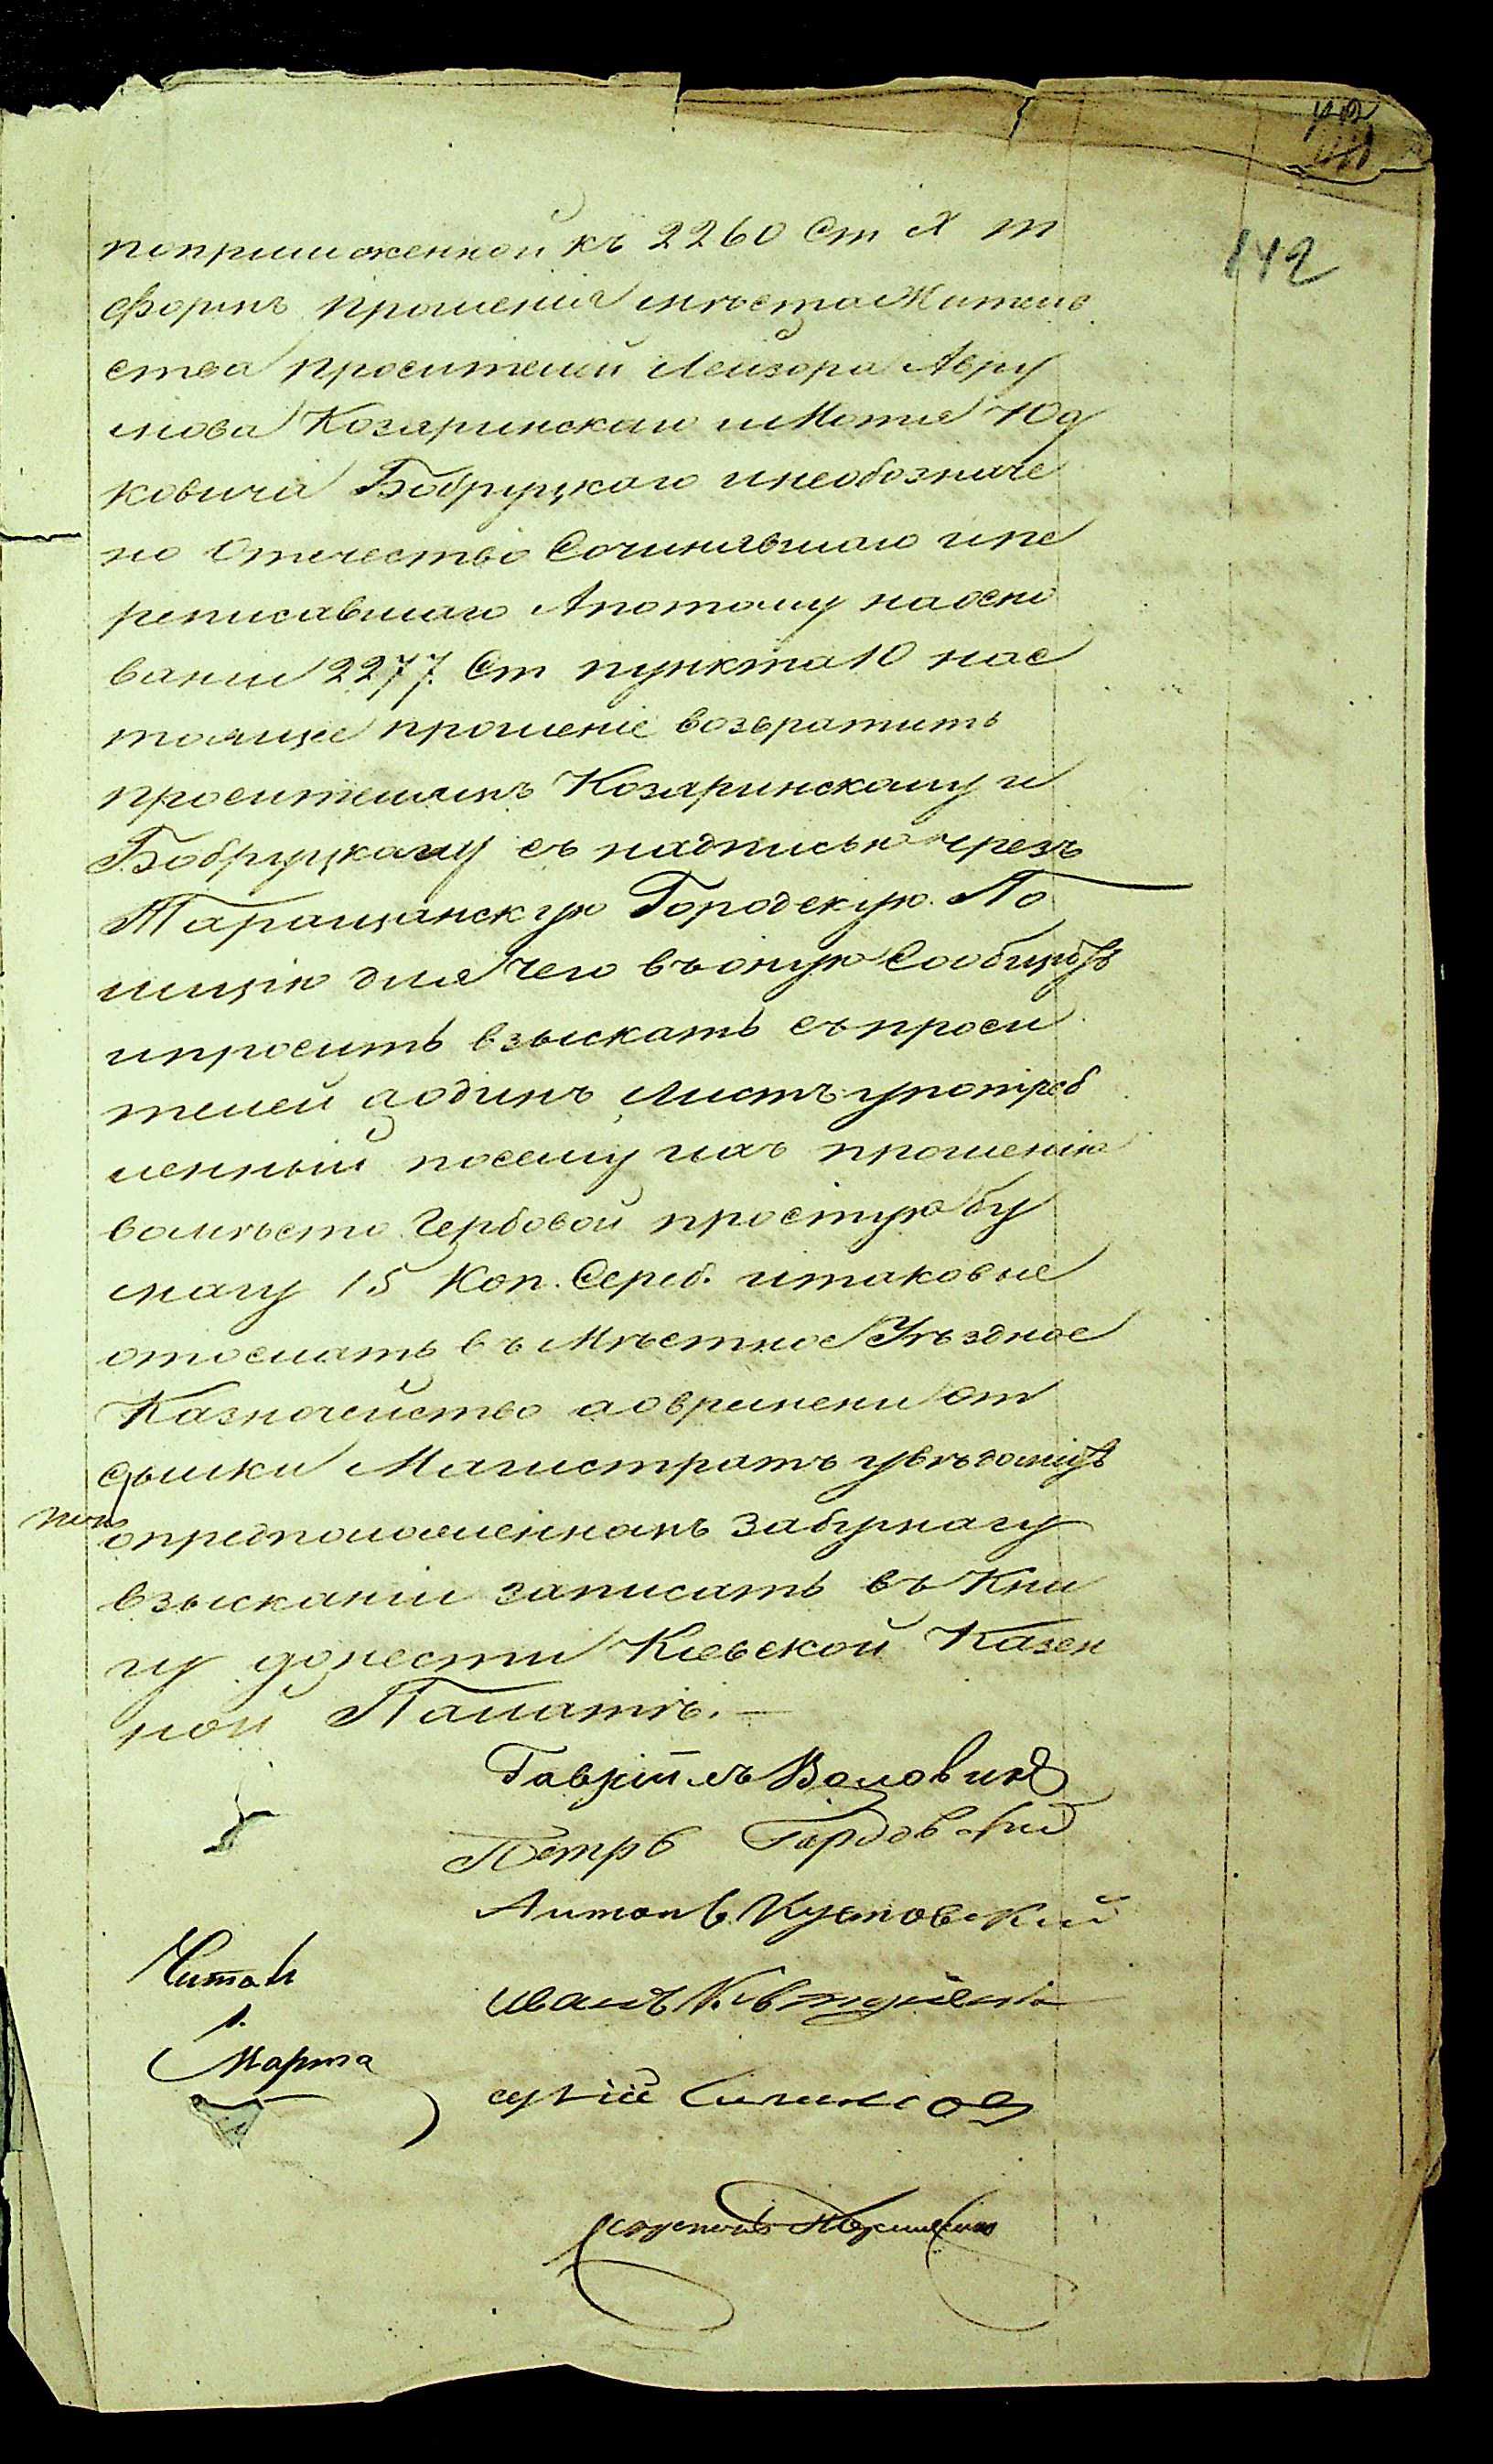 142
поприложенной къ 2260 Ст Х т
формѣ прошенія мѣста Житель
ства просителей Лейзора Авру
мова Козаринскаго и Мотя Юд
ковича Бобруцкого инеобозначе
но Отечество Сочинявшаго ипе
реписавшаго Апотому наосно
ваніи 2277 Ст пункта 10 нас
тоящее прошеніе возвратить
просителямъ Козаринскому и
Бобруцкому съ надписью чрезъ
Таращанскую Городскую По
лицію для чего въоную Сообщить
ипросить взыскать съпроси
телей заодинъ Листъ употреб
ленный посему ихъ прошенію
вомѣсто Гербовой простую бу
магу 15 Коп. Сереб. итаковые
отослать въ Мѣстное Уѣздное
Казначейство аовремени от
сылки Магистратъ увѣдомить
опредположенномъ Забумагу
взысканіи записать въ Кни
гу донести Кіевской Казен
ной Палатѣ.—
Гавріилъ Воловик
Петръ Гордовскій
Антонъ Кутковский
Иванъ
Читал
1.
Марта